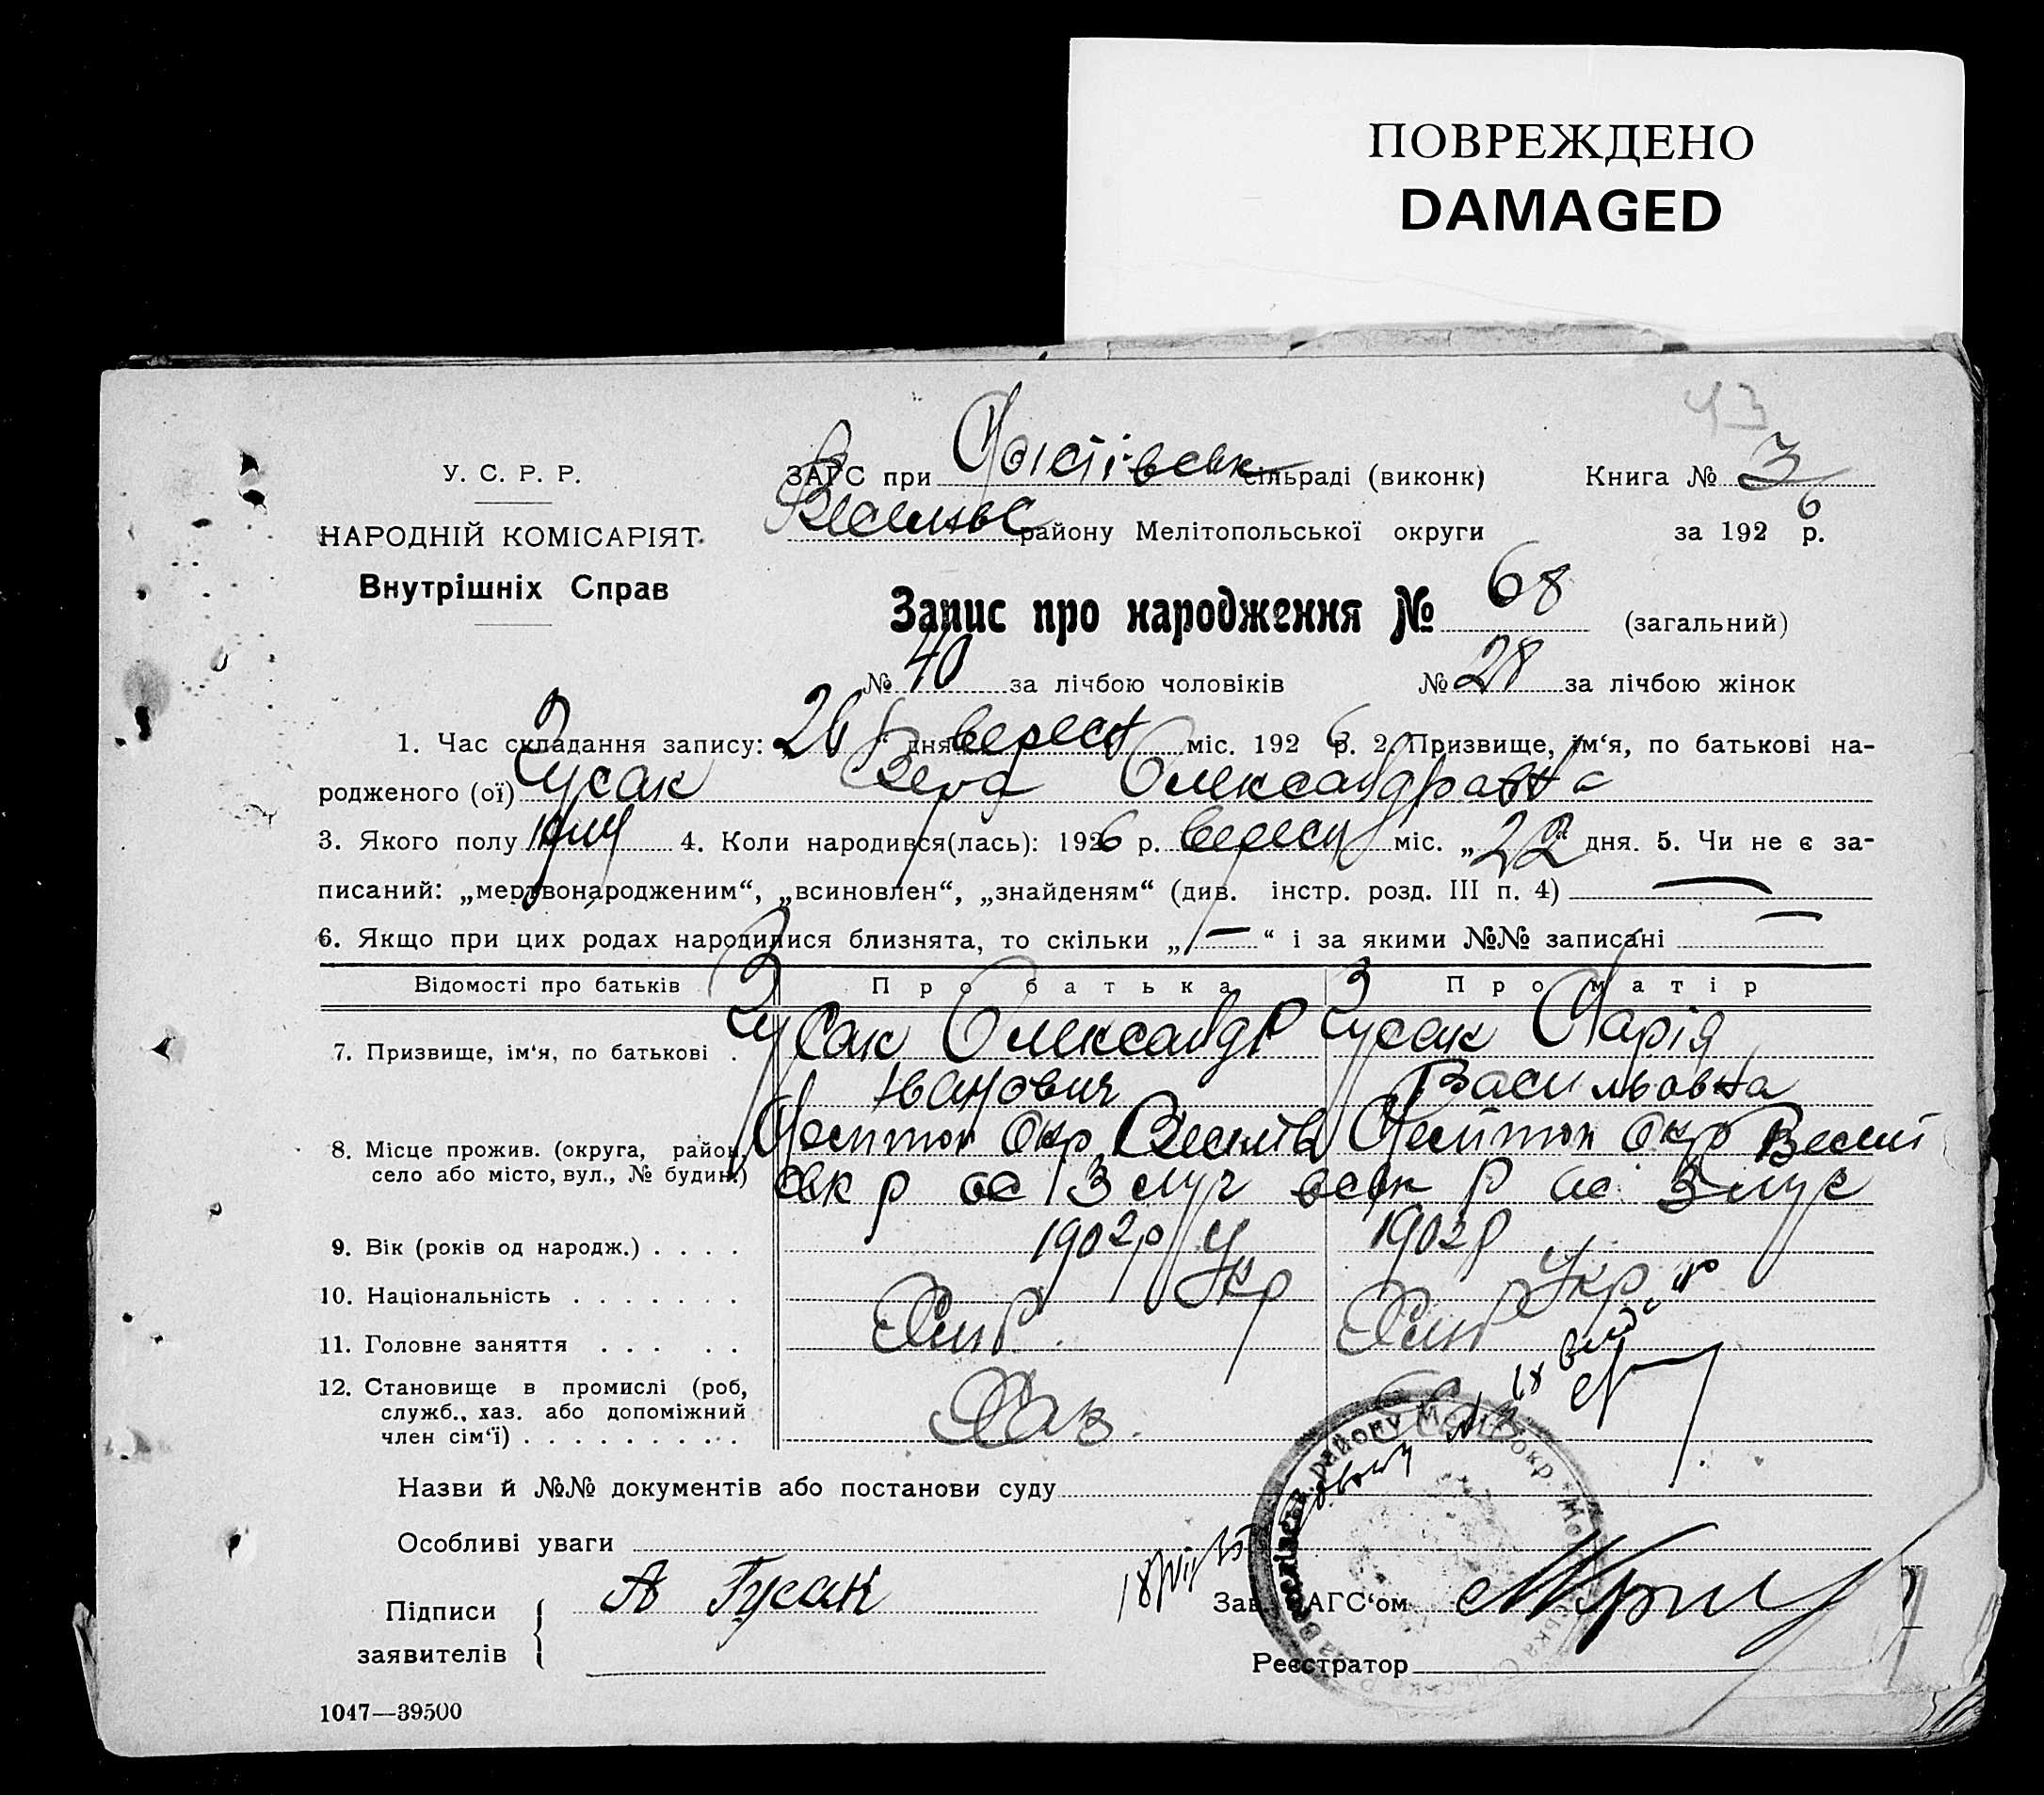 ПОВРЕЖДЕНО
DAMAGED
43
У. С. Р. Р.
НАРОДНІЙ КОМІСАРІЯТ
Внутрішніх Справ
ЗАГС при сільраді (виконк)
району Мелітопольської округи
Книга № 3
за 1926 р.
Запис про народження № 68 (загальний)
№ 40 за лічбою чоловіків № 28 за лічбою жінок
1. Час складання запису: 26 " дня вересн міс. 1926 р. 2. Призвище, ім‘я, по батькові на-
родженого (ої) Гусак Вера Олександравна
3. Якого полу 4. Коли народився(лась): 1926 р. вересн міс. „ 22 “ дня. 5. Чи не є за-
писаний: „мертвонародженим“, „всиновлен“, „знайденям“ (див. інстр. розд. III п. 4) —
6. Якщо при цих родах народилися близнята, то скільки „ — “ і за якими №№ записані —
Відомості про батьків Про батька Про матір
7. Призвище, ім‘я, по батькові . Гусак Олександр Гусак Марія
Іванович Васильовна
8. Місце прожив. (округа, район, Окр Окр
село або місто, вул., № будин.) р р
9. Вік (років од народж.) . . . . 1902р 1902р
10. Національність . . . . . . . Укр Укр
11. Головне заняття . . . . . Хліб Хліб
12. Становище в промислі (роб,
служб., хаз. або допоміжний Хаз.
член сім‘ї) . . . . . . . . . .
Назви й №№ документів або постанови суду
Особливі уваги
Підписи А Гусак Зав. ЗАГС‘ом
заявителів Реєстратор
1047—39500